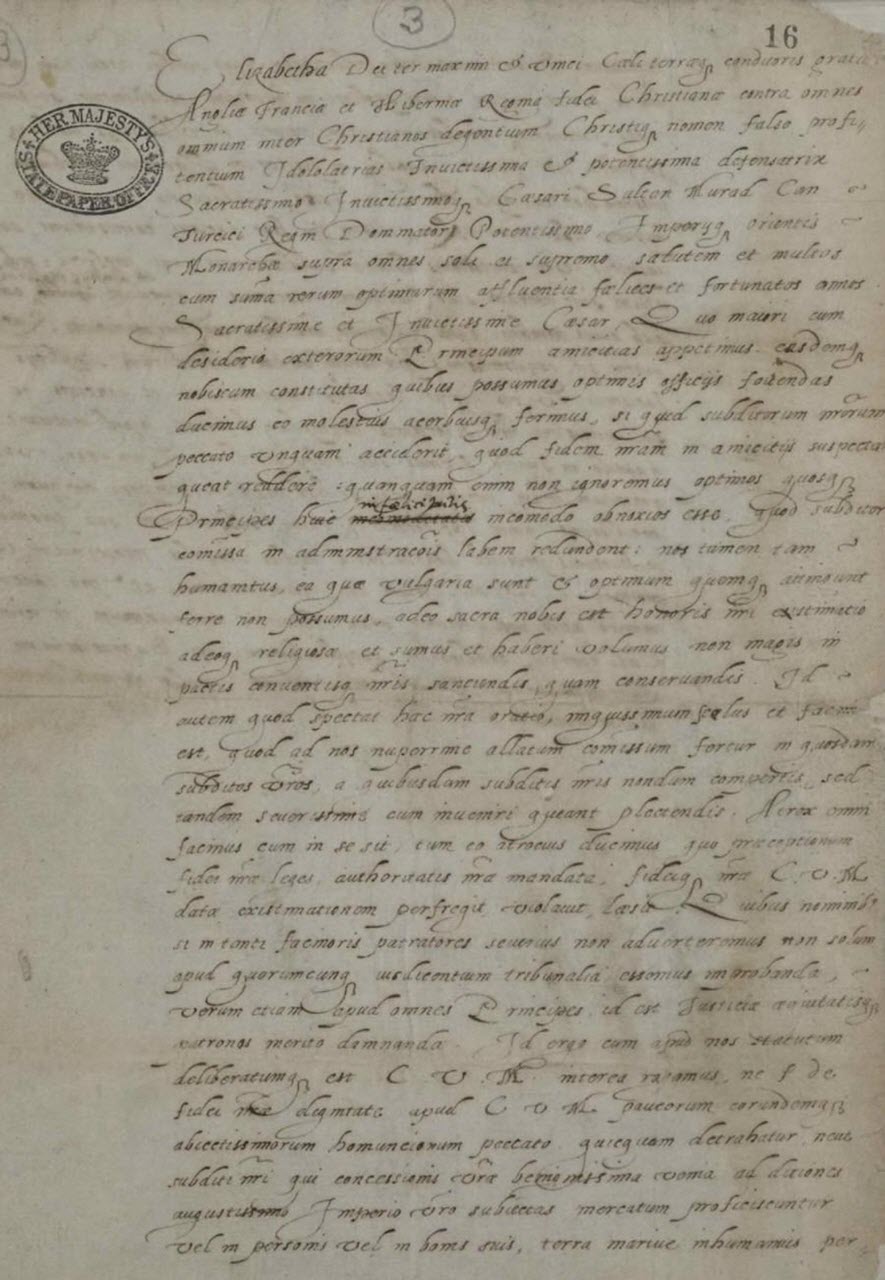 3
16
HER MAJESTY'S STATE PAPER OFFICE
Elizabetha Dei ter maximi et unici Cæli terræq conditoris gratia
Angliæ Franciæ et Hiberniæ Regina fidei Christianæ contra omnes
omnium inter Christianos degentium Christiq nomen falso profi
tentium Idololatrias Invictissima et potentissima defensatrix
Sacratissimo Invictissimoq Cæsari Sultan Murad Can
Turcici Regni Dominatori Potentissimo, Imperijq orientis
Monarchæ supra omnes soli et supremo salutem et multos
cum suma rerum optimarum affluentia fælices et fortunatos annos.
Sacratissime et Invictissime Cæsar, Quo maiori cum
desiderio exterorum Principum amicitias appetimus easdemq
nobiscum constitutas quibus possumus optimis officijs fovendas
ducimus eo molestius acerbiusq ferimus, si quid subditorum nrorum
peccato unquam acciderit, quod fidem nram in amicitijs suspectam
queat reddere: quanquam enim non ignoremus optimos quosq
Principes huic incomodo obnoxios esse, quod subditor
comissa in administracois labem redundent: nos tamen tam
humanitus, ea quæ vulgaria sunt et optimum quemq attingunt
ferre non possumus, adeo sacra nobis est honoris nri existimatio
adeoq religiosæ et sumus et haberi volumus non magis in
pactis conventisq nris sanciendis, quam conservandis. Id
autem quod spectat hæc nra oratio, iniquissimum scelus et facinus
est, quod ad nos nuperrime allatum comissum fertur in quosdam
subditos vros, a quibusdam subditis nris nondum compertis, sed
tandem severissime cum inveniri queant plectendis. Atrox omni
facinus cum in se sit, tum eo atrocius ducimus quo præceptionum
fidei nræ leges, authoritatis nræ mandata, fideiq nræ C. V. M
datæ existimationem perfregit violavit, læsit. Quibus nominibs
si in tanti facinoris patratores severius non adverteremus non solum
apud quorumcunq iusdicentium tribunalia essemus improbanda,
verum etiam apud omnes Principes, id est Justiciæ æquitatisq
patronos merito damnanda. Id ergo cum apud nos statutum
deliberatumq est C. V. M. interea rogamus, ne de
fidei nræ dignitate apud C V M paucorum eorundemq
abiectissimorum homuncionum peccato quicquam detrahatur, neve
subditi nri qui concessionis vræ benignissima venia ad ditiones
augustissimo Imperio vro subiectas mercatum proficiscuntur
vel in personis vel in bonis suis, terra marive inhumanius per